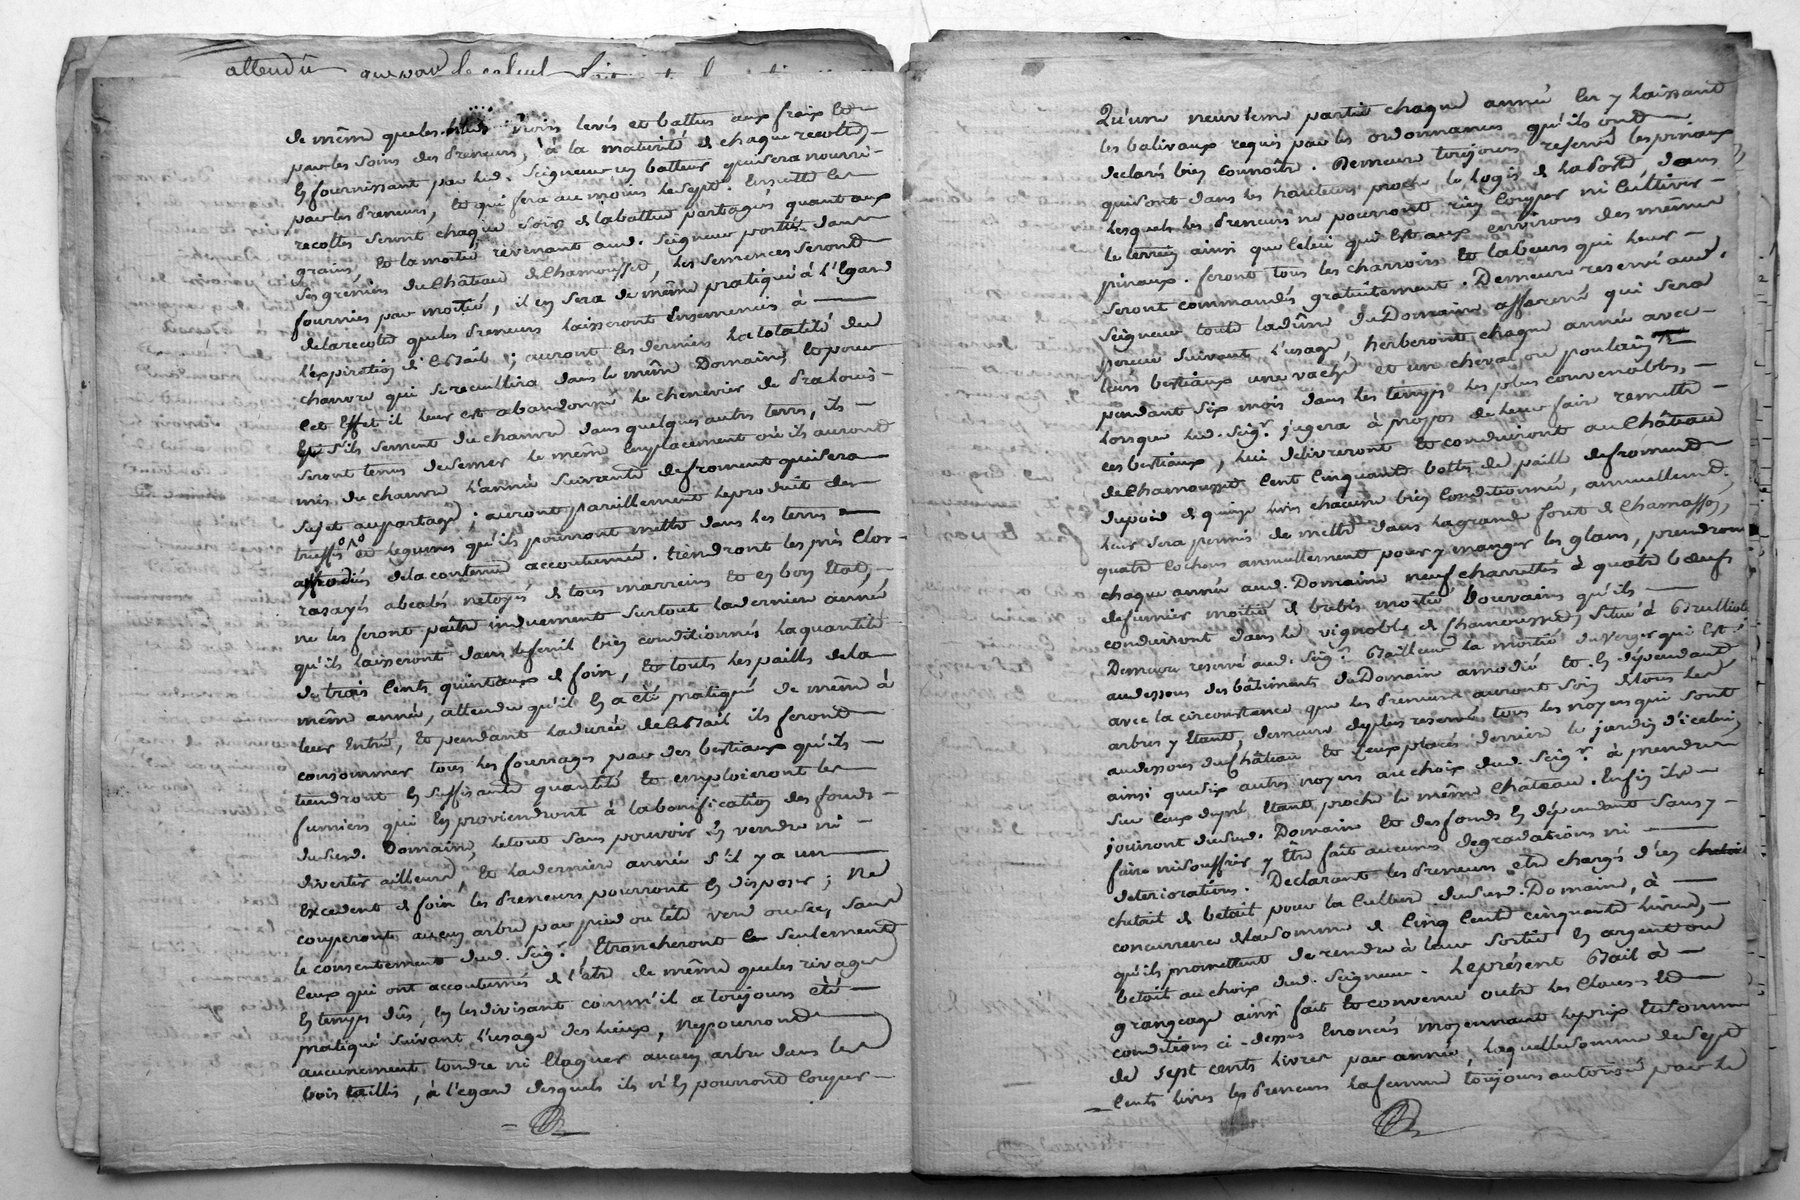 attendu
de même que les levés et battus aux fraix et
par les soins des preneurs, à la maturité de chaque recolte,
En fournissant par led. Seigneur un batteur qui sera nourri
par les preneurs, et qui sera au moins le sept. Ensuitte les
recoltes seront chaque soir de la battue partagés quant aux
grains, et la moitié revenant aud. Seigneur portée dans
ses greniers du Château de Chamousset, les semences seront
fournies par moitié, il en sera de même pratiqué à l'Egard
de la recolte que les preneurs laisseront Ensemencés à
l'expiration du Bail ; auront les derniers la totalité du
chanvre qui se recuillira dans le même Domaine, et pour
cet Effet il leur est abandonné le chenevier de
Et s'ils sement du chanvre dans quelques autres terres, ils
seront tenus de semer le même Emplacement où ils auront
mis du chanvre l'année suivante de froment qui sera
sujet au partage ; auront pareillement le produit des
truffes et legumes qu'ils pourront mettre dans les terres
de la contenue accoutumée. tiendront les prés clos
rasayés abealés netoyés de tous marreins et en bon Etat,
ne les feront paître induement surtout la derniere année
qu'ils laisseront dans le fenil bien conditionnés la quantité
de trois cents quintaux de foin, et touts les pailles de la
même année, attendu qu'il en a été pratiqué de même à
leur Entrée, et pendant la durée de ce Bail ils feront
consommer tous les fourrages par des bestiaux qu'ils
tiendront en suffisante quantité et emploieront les
fumiers qui en proviendront à la bonification des fonds
dususd. Domaine, le tout sans pouvoir en vendre ni
divertir ailleurs, et la derniere année s'il y a un
Excedent de foin les preneurs pourront en disposer ; Ne
couperont aucun arbre par pied ou tête verd ou sec, sans
le consentement dud. Seigr. Etrancheront seulement
ceux qui ont accoutumés de l'être de même que les rivages
En temps dûs, en les divisant comm'il a toujours été
pratiqué suivant l'usage des lieux, Ne pourront
aucunement tondre ni Elaguer aucun arbre dans les
bois taillis, à l'egard desquels ils n'en pourront couper
Qu'une neuvième partie chaque année en y laissant
les balivaux requis par les ordonnances qu'ils ont
declarés bien connoitre. Demeure toujours reservé les pinaux
qui sont dans les hauteurs proche le logis de la Poste dans
lesquels les preneurs ne pourront rien couper ni cultiver
le terrein ainsi que celui qui est aux environs des mêmes
pinaux. feront tous les charrois et labeurs qui leur
seront commandés gratuitement. Demeure reservé aud.
Seigneur toute la dîme du Domaine affermé qui sera
perçue suivant l'usage, herberont chaque année avec
leurs bestiaux une vache et un cheval ou poulain
pendant six mois dans les temps les plus convenables,
lorsque led. Seigr. jugera à propos de leur faire remettre
ces bestiaux, lui delivreront et conduiront au Château
de Chamousset cent cinquante bottes de paille de froment
du poid de quinze livres chacune bien conditionnée, annuellemt.
leur sera permis de mettre dans la grande fort de Chamosson,
quatre cochons annuellement pour y manger les glans, prendront
chaque année aud. Domaine neuf charrettes à quatre bœufs
de fumier moitié de brebis moitié bouvains qu'ils
conduiront dans le vignoble de Chamousset situé à
Demeure reservé aud. Seigr. Bailleur la moitié du verger qui est
au dessous des bâtiments du Domaine amodié et en dépendant
avec la circonstance que les preneurs auront soin de tous les
arbres y Etant, demeure de plus reservé tous les noyers qui sont
au dessous du Château et ceux placés derrière le jardin d'icelui,
ainsi que six autres noyers au choix dud. Seigr. à prendre
sur ceux du pré Etant proche le même Chateau. Enfin ils
jouiront dususd. Domaine et des fonds en dépendant sans y
faire ni souffrir y Etre fait aucunes degradations ni
deteriorations. Declarant les preneurs etre chargés d'un
cheteil de betail pour la culture dususd. Domaine, à
concurrence de la somme de cinq cents cinquante livres,
qu'ils promettent de rendre à leur sortie en argent ou
betail au choix dud. Seigneur. Le présent Bail à
grangeage ainsi fait et convenu outre les clauses et
conditions ci-dessus Enoncées moyennant le prix et somme
de sept cents livres par année, laquelle somme de sept
cents livres les preneurs la femme toujours autorisée par le